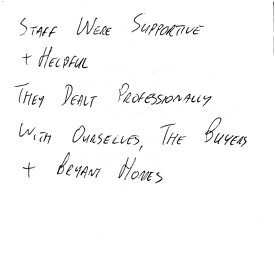 STAFF WERE SUPPORTIVE
+ HELPFUL
THEY DEALT PROFESSIONALLY
WITH OURSELVES, THE BUYERS
+ BRYANT HOMES